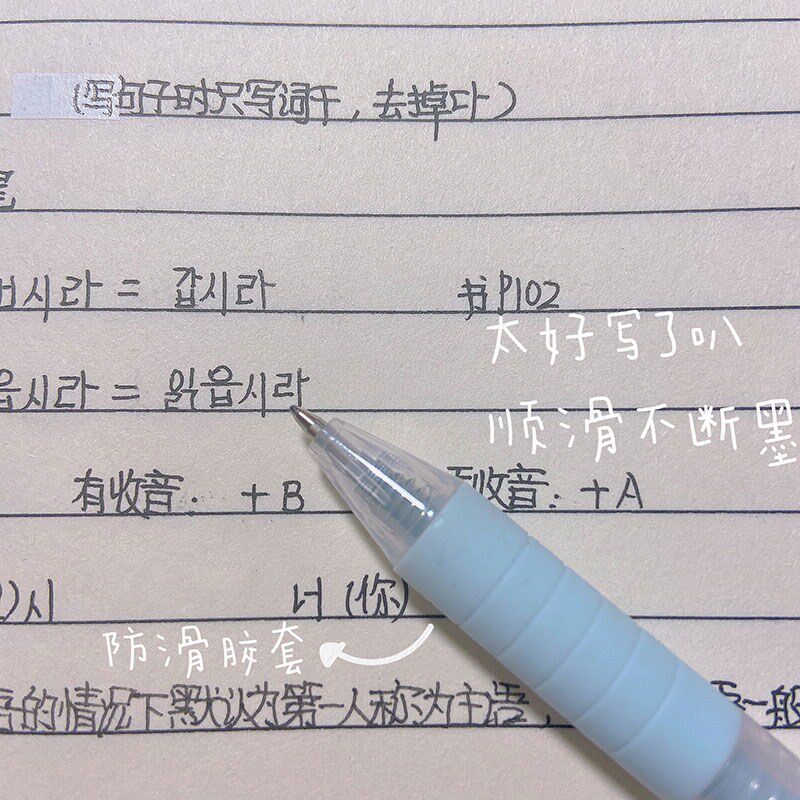 (写句子时只写词干，去掉다)
尾
시라 = 갑시라 书P102
太好写了叭
읍시라 = 읽읍시라
顺滑不断墨
有收音: +B 收音: +A
)시 너 (你)
防滑胶套
的情况下默认为第一人称为主语, 一般